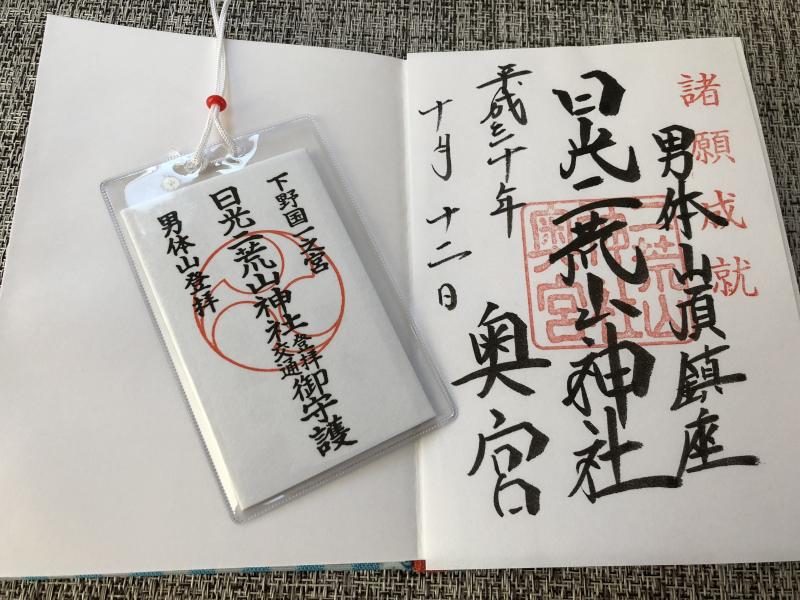 諸願成就
男体山頂鎮座
日光二荒山神社
奥宮
平成三十年
十月十二日
二荒山
神社
奥宮
下野国一之宮
日光二荒山神社登拝交通御守護
男体山登拝